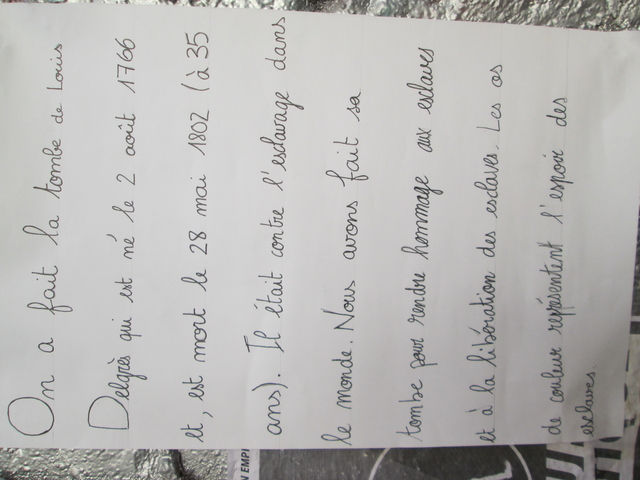 On a fait la tombe de Louis
Delgrès qui est né le 2 août 1766
et, est mort le 28 mai 1802 (à 35
ans). Il était contre l'esclavage dans
le monde. Nous avons fait sa
tombe pour rendre hommage aux esclaves
et à la libération des esclaves. Les os
de couleur représentent l'espoir des
esclaves.
N EMPL